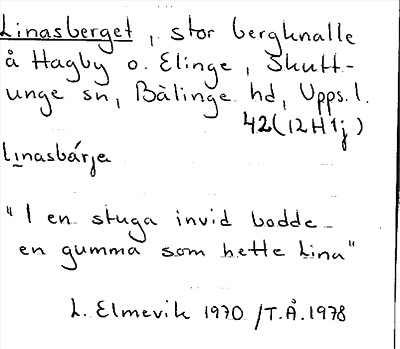 Linasberget, stor bergknalle
å Hagby o. Elinge, Skutt-
unge sn, Bälinge hd, Upps.l.
42(12H1j)
Linasbárja
"I en stuga invid bodde
en gumma som hette Lina"
L. Elmevik 1970 /T.Å.1978